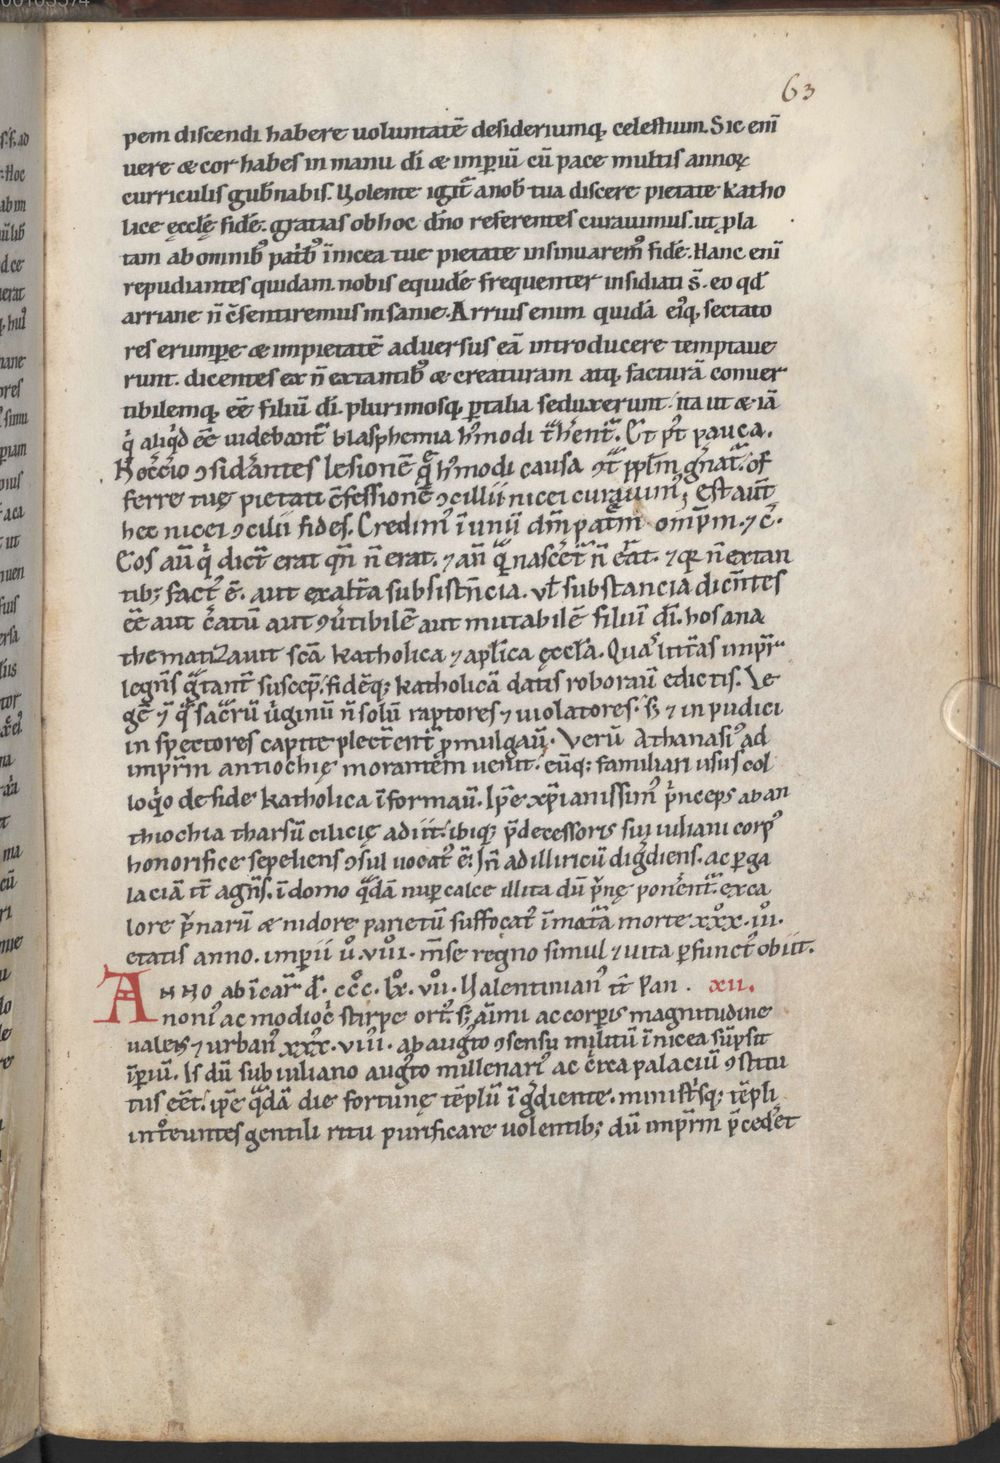 63
pem discendi habere uoluntatē desideriumq; celestium. Sic enī
uere & cor habes in manu dī & imperiū cū pace multis annoꝝ
curriculis gub̄nabis. Uolente igit̄ a nob̄ tua discere pietate katho
lice ęcclę̄ fidē. gratias ob hoc dn̄o referentes curauimus. ut ꝑ pla
tam ab omnibꝰ patribꝰ ī nicea tue pietate insinuaremꝰ fidē. Hanc enī
repudiantes quidam. nobis equidē frequenter insidiati s̄. eo qđ
arriane n̄ c̄sentiremus insanie. Arrius enim quidā eiꝰq; sectato
res erumpere & impietatē aduersus eā introducere temptaue
runt. dicentes ex n̄ extantibꝰ & creaturam atq; facturā conuer
tibilemq; eē filiū dī. plurimosq; ꝑ talia seduxerunt. ita ut & iā
q̇ aliq̇d eē uidebant̄ blasphemia hꝰmodi
ferre tuę pietati c̄fessionē ꝯcilii niceni curauimꝰ; Est aut̄
hec niceni ꝯcilii fides. Credimꝰ ī unū dm̄ patrē om̄ip̄m. ⁊ c̄.
Eos aū q̇ dict̄ erat qn̄ n̄ erat. ⁊ an̄ qᷓ nascēt n̄ erat. ⁊ qꝛ n̄ extan
tibꝫ factꝰ ē. aut ex alt̄a subsistn̄cia. ul̄ substancia dicn̄tes
eē aut creatū aut ꝯuertibilē aut mutabilē filiū dī. hos ana
thematizauit scā katholica ⁊ apl̄ica ęccl̄a. Quaꝝ litt̄as imp̄r
legn̄s gᷓtant̄ suscep̄. fidēq; katholicā datis roborau̅ edictis. Le
gē ⁊ qᷓ sacrarū uirginū n̄ solū raptores ⁊ uiolatores. sꝫ ⁊ inpudici
inspectores capite plectent̄ ꝓmulgau̅. Verū Athanasiꝰ ad
imp̄rm antiochię morantem uenit. eūq; familiari usus col
loq̇o de fide katholica īformau̅. Ip̄e xp̄ianissimꝰ prīnceps ab an
thiochia tharsū cilicię adiit. ibiq; p̄decessoris sui iuliani corpꝰ
honorifice sepeliens ꝯsul uocatꝰ ē. In̄ ad illiricū digrediens. ac ꝑ ga
laciā it̄ agn̄s. ī domo qᷓdā nuꝑ calce illita dū prunę ponerent̄. ex ca
lore prunarū & nidore parietū suffocatꝰ īmat̄a morte. xxx. iii.
etatis anno. imperii ū. viii. m̄se regno simul ⁊ uita ꝑfunctꝰ obiit.
Anno ab īcar̄ d̄. ccc. lx. vii. Ualentinianꝰ
nonię ac mediocri stirpe ortꝰ. sꝫ aīmi ac corporis magnitudine
ualens ⁊ urbanꝰ xxx. viii. ab augusto ꝯsensu militū ī nicea sūpsit
īperiū. Is dū sub iuliano augusto millenariꝰ ac circa palaciū ꝯstitu
tus eēt. ip̄e qᷓdā die fortunę tēplū īgrediente. ministrisq; tēpli
introeuntes gentili ritu purificare uolentibꝫ dū imp̄rm p̄cederet
xii.